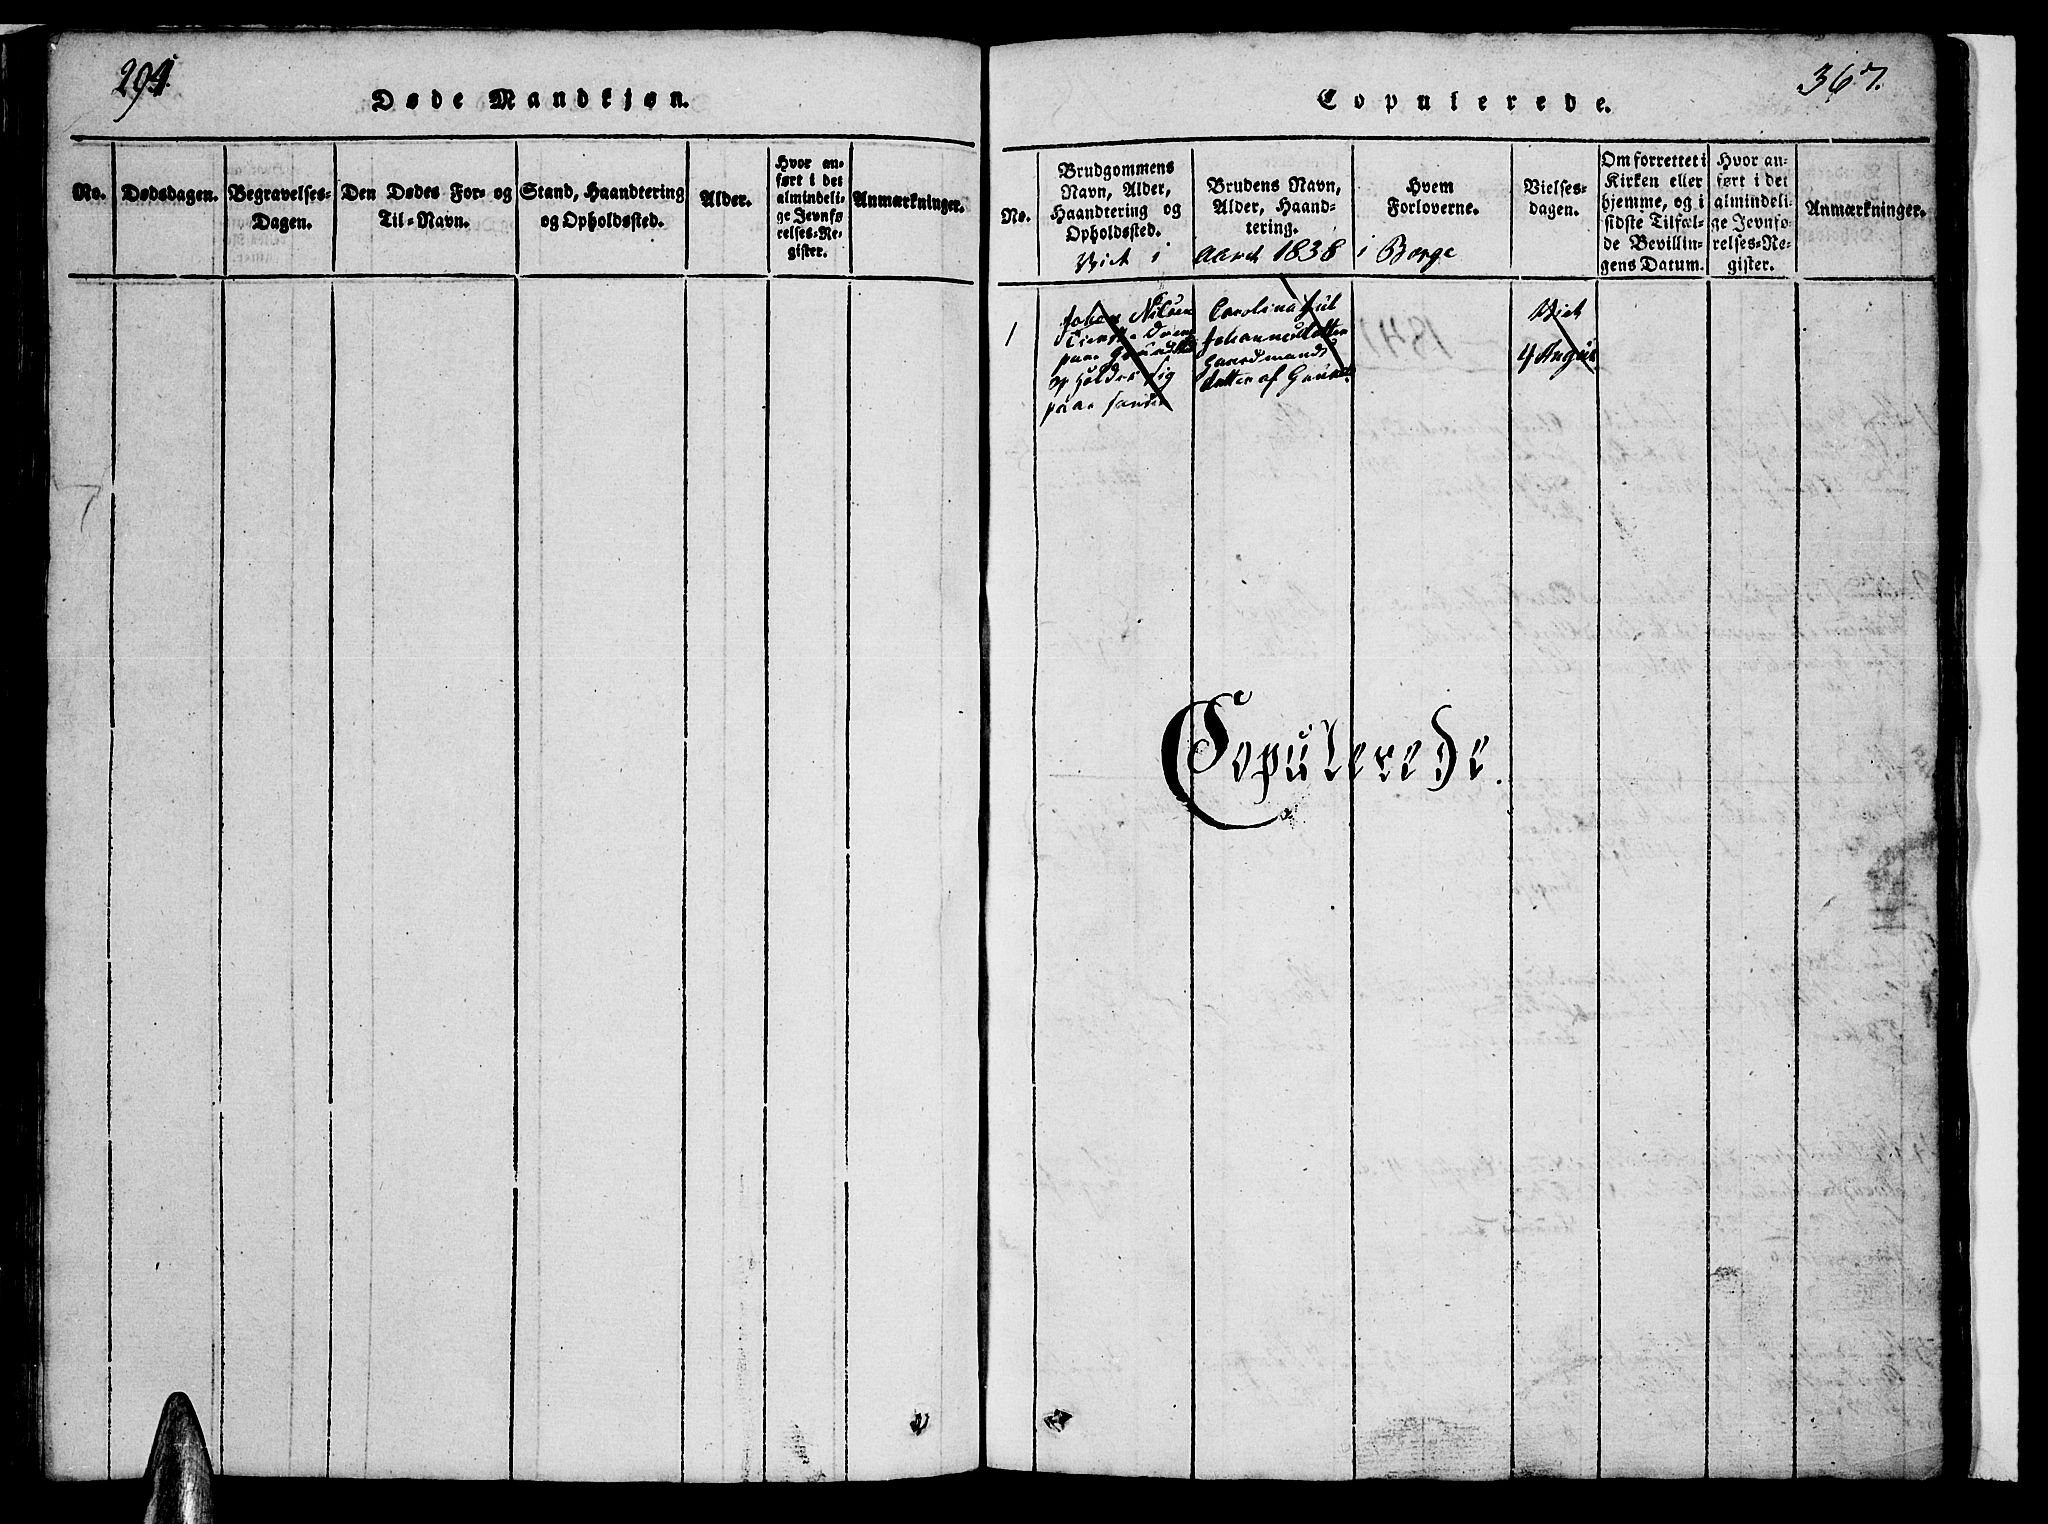 294.
Døde Mandkjøn.
No.
Dødsdagen.
Begravelses-
Dagen.
Den Dødes For- og
Til-Navn.
Stand, Haandtering
og Opholdssted.
Alder.
Hvor an-
ført i det
almindeli-
ge Jevnfø-
relses-Re-
gister.
Anmærkninger.
367.
Copulerede.
No.
Brudgommens
Navn, Alder,
Haandtering og
Opholdssted.
Viet i
Brudens Navn,
Alder, Haand-
tering.
Aaret 1838
Hvem
Forloverne.
i Borge
Vielses-
dagen.
Om forrettet i
Kirken eller
hjemme, og i
sidste Tilfæl-
de Bevillin-
gens Datum.
Hvor an-
ført i det
almindeli-
ge Jevnfø-
relses-Re-
gister.
Anmærkninger.
1
Johan Nilsen
paa
opholder sig
paa
Carolina Jul
Johannesdatter
Gaardmands
datter af
Viet
4 August
Copulerede.